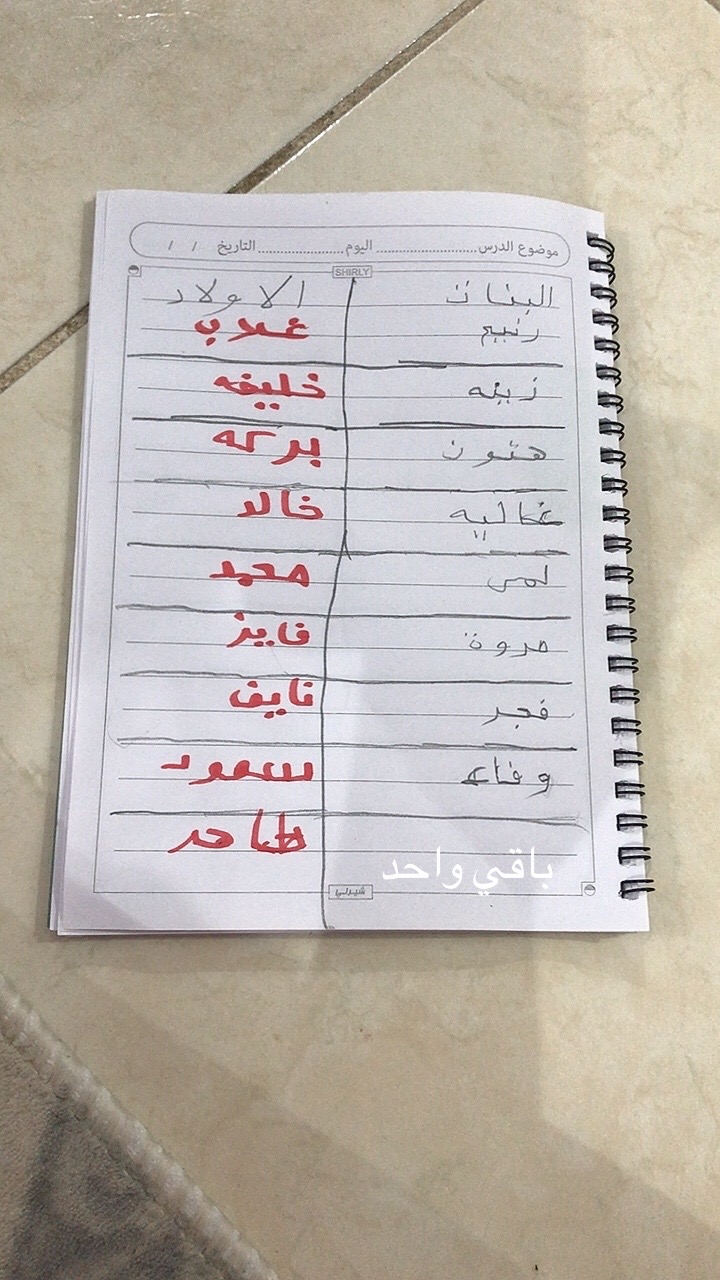 موضوع الدرس.................... اليوم.................... التاريخ / /
SHIRLY
البنات الاولاد
ربيع غلاب
زينه خليفه
هتون بركه
غاليه خالد
لمى محمد
مروة فايز
فجر نايف
وفاء سعود
باقي واحد